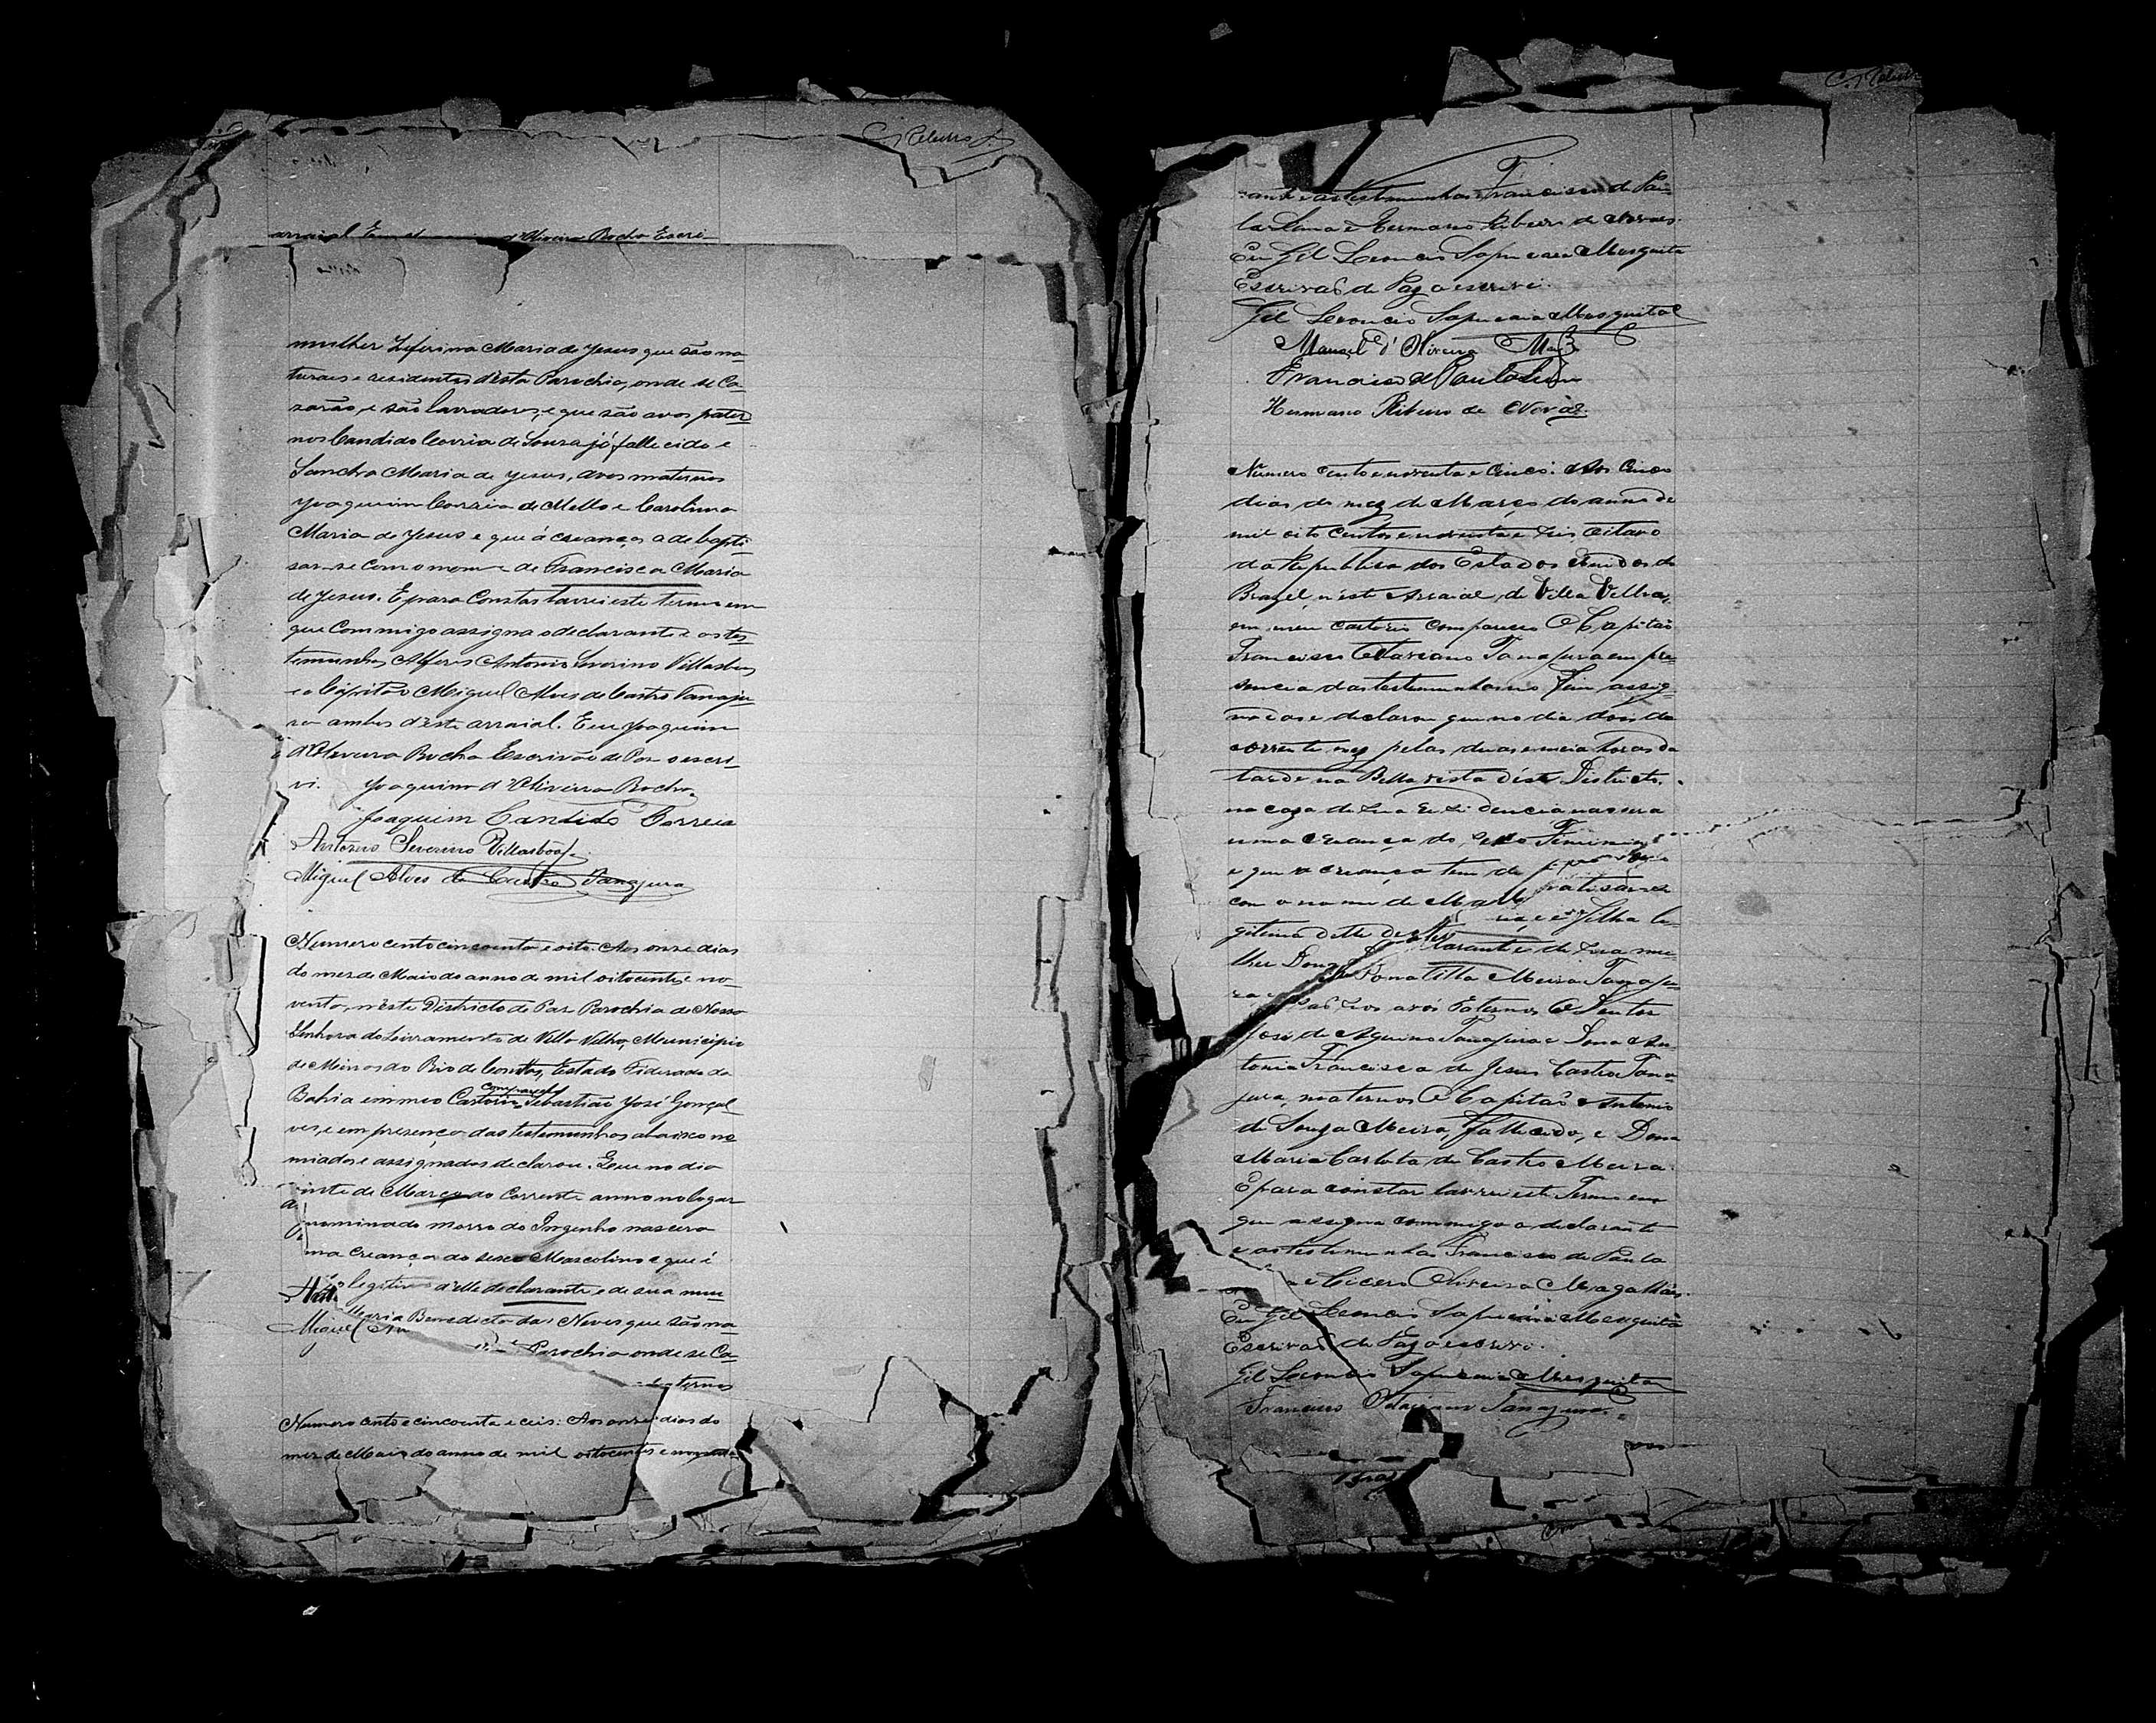 C. Rebello
arraial Eu d'Oliveira Rocha Escri-
mulher Zeferina Maria de Jesus que são na-
turaes e residentes d'esta Parochia, onde se Ca-
sarão, e são lavradores, e que são avos pater-
nos Candido Correia de Souza já fallecido e
Sancha Maria de Jesus, avos maternos
Joaquim Correia de Mello e Carolina
Maria de Jesus e que á creança a de bapti-
sar-se com o nome de Francisca Maria
de Jesus. E para Constar larrei este termo em
que Commigo assigna o declarante e as tes-
temunhas Alferes Antonio Severino Villasboas
e o Capitão Miguel Alves de Castro Tanaju-
ra ambos d'este arraial. Eu Joaquim
d'Oliveira Rocha Escrivão de Paz o escri-
vi. Joaquim d'Oliveira Rocha
Joaquim Candido Correia
Antonio Severino Villasbôas
Miguel Alves de Castro Tanajura
Numero cento cincoenta e oito. Aos onze dias
do mez de Maio do anno de mil oitocentos e no-
venta, n'este Districto de Paz Parochia de Nossa
Senhora do Livramento de Villa Velha, Municipio
de Minas do Rio de Contas, Estado Federado da
Bahia em meo Cartorio compareceo Sebastião José Gonçal-
ves, e em presença das testemunhas abaixo no-
miadas e assignadas declarou. Que no dia
vinte de Março do Corrente anno no logar
nominado morro do Ingenho nascera
ma Creança do sexo Mascolino e que é
legitimo d'elle declarante e de sua mu-
Maria Benedicta das Neves que são na-
Miguel
Parochia onde se Ca-
aternos
Numero cento e cincoenta e ceis: Aos onze dias do
mez de Maio do anno de mil oitocentos e noventa
rante e as testemunhas Francisco de Pau-
la Lima e Hermano Ribeiro de Novaes.
Eu Gil Leoncio Sapucaia Mesquita
Escrivaõ de Paz o escrivi.
Gil Leoncio Sapucaia Mesquita
Manoel d'Oliveira
Francisco de Paula Lima
Hermano Ribeiro de Novaes.
Numero cento e noventa e Cinco: Aos Cinco
dias do mez de Março do anno de
mil oito Centos e noventa e seis Oitavo
da Republica dos Estados Unidos do
Brazil, n'este Arraial de Villa Velha,
em meu cartorio compareceo O Capitaõ
Francisco Tanajura em pre-
sencia das testemunhas no fim assig-
nadas e declarou que no dia dois do
corrente mez pelas duas e meia horas da
tarde na Bella vista d'este Districto,
na caza de sua residencia nascera
uma creança do sexo Feminino
e que a creança tem de
com o nome de Ma
ria, e é filha le-
gitima delle declarante e de sua mu-
lher Dona Ponatilla Meira Tanaju-
ra e saõ seos avós Paternos O Senhor
José de Aquino Tanajura e Dona An-
tonia Francisca de Jesus Castro Tana-
jura, maternos O Capitaõ Antonio
de Souza Meira, fallecido, e Dona
Maria Carlota de Castro Meira.
E para constar larrei este Termo em
que assigna commigo o declarante
e as testemunhas Francisco de Paula
e Cicero Oliveira Magalhães.
Eu Gil Leoncio Sapucaia Mesquita
Escrivaõ de Paz o escrivi.
Gil Leoncio Sapucaia Mesquita
Francisco Tanajura.